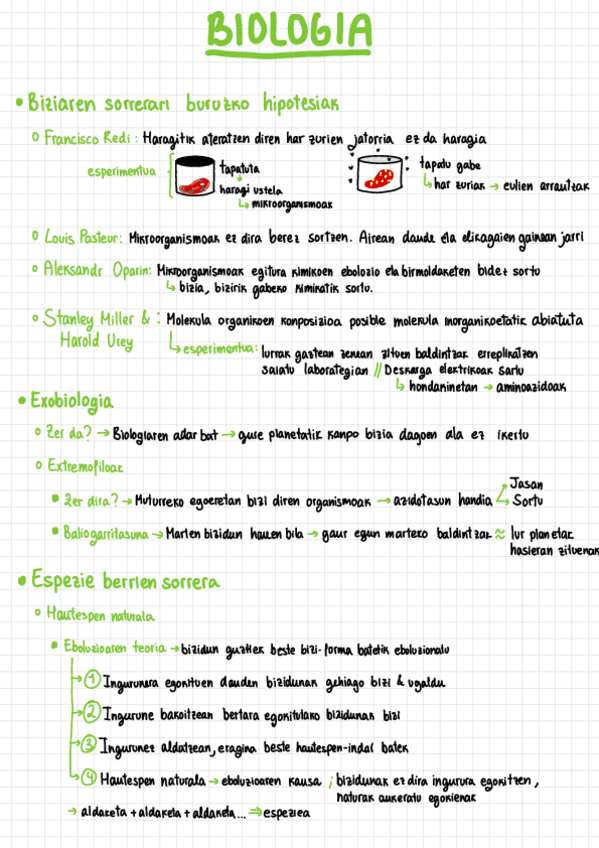 BIOLOGIA
• Biziaren sorrerari buruzko hipotesiak
○ Francisco Redi: Haragitik ateratzen diren har zurien jatorria ez da haragia
esperimentua
tapatuta
haragi ustela
↳ mikroorganismoak
tapatu gabe
↳ har zuriak → eulien arrautzak
○ Louis Pasteur: Mikroorganismoak ez dira berez sortzen. Airean daude eta elikagaien gainean jarri
○ Aleksandr Oparin: Mikroorganismoak egitura kimikoen eboluzio eta birmoldaketen bidez sortu
↳ bizia, bizirik gabeko kimikatik sortu.
○ Stanley Miller & : Molekula organikoen konposizioa posible molekula inorganikoetatik abiatuta
Harold Urey
↳ esperimentua: lurrak gaztean zenean zituen baldintzak erreplikatzen
saiatu laborategian // Deskarga elektrikoak sartu
↳ hondakinetan → aminoazidoak
• Exobiologia
○ Zer da? → Biologiaren adar bat → gure planetatik kanpo bizia dagoen ala ez ikertu
○ Extremofiloak
▪ Zer dira? → Muturreko egoeretan bizi diren organismoak → azidotasun handia
Jasan
Sortu
▪ Baliogarritasuna → Marten bizidun hauen bila → gaur egun marteko baldintzak ≈ lur planetak
hasieran zituenak
• Espezie berrien sorrera
○ Hautespen naturala
▪ Eboluzioaren teoria → bizidun guztiek beste bizi-forma batetik eboluzionatu
→ ① Ingurunera egokituen dauden bizidunak gehiago bizi & ugaldu
→ ② Ingurune bakoitzean bertara egokitutako bizidunak bizi
→ ③ Ingurunez aldatzean, eragina beste hautespen-indar batek
→ ④ Hautespen naturala → eboluzioaren kausa ; bizidunak ez dira ingurura egokitzen,
naturak aukeratu egokienak
→ aldaketa + aldaketa + aldaketa... ⇒ espeziea